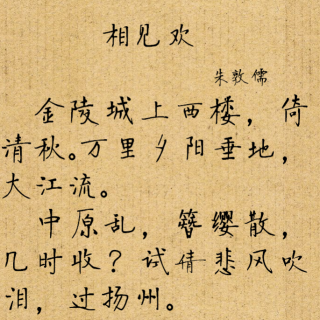 相见欢
朱敦儒
金陵城上西楼，倚
清秋。万里夕阳垂地，
大江流。
中原乱，簪缨散，
几时收？试倩悲风吹
泪，过扬州。